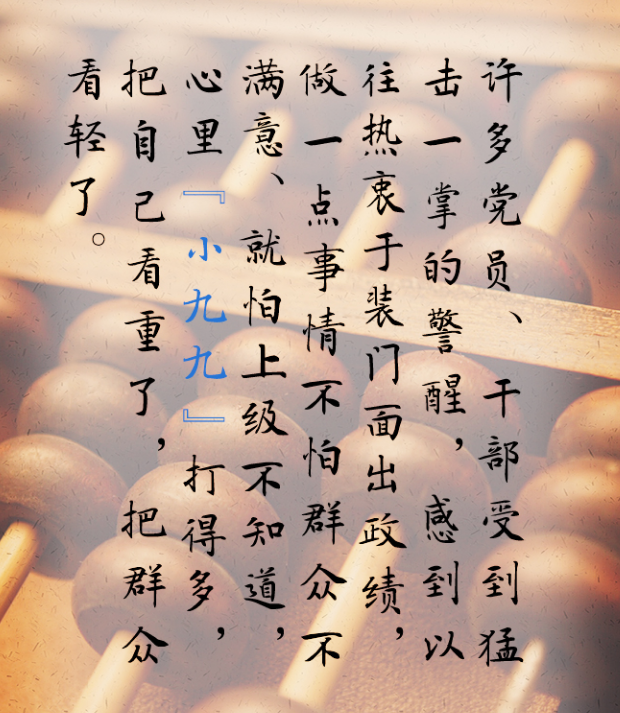 许多党员、干部受到猛
击一掌的警醒，感到以
往热衷于装门面出政绩，
做一点事情不怕群众不
满意、就怕上级不知道，
心里『小九九』打得多，
把自己看重了，把群众
看轻了。